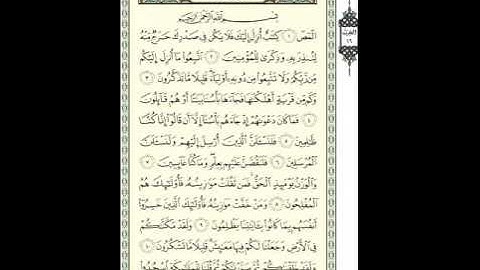 بِسْمِ اللَّهِ الرَّحْمَٰنِ الرَّحِيمِ
الٓمٓصٓ ١ كِتَٰبٌ أُنزِلَ إِلَيْكَ فَلَا يَكُن فِي صَدْرِكَ حَرَجٌ مِّنْهُ
لِتُنذِرَ بِهِۦ وَذِكْرَىٰ لِلْمُؤْمِنِينَ ٢ ٱتَّبِعُوا۟ مَآ أُنزِلَ إِلَيْكُم
مِّن رَّبِّكُمْ وَلَا تَتَّبِعُوا۟ مِن دُونِهِۦٓ أَوْلِيَآءَ قَلِيلًا مَّا تَذَكَّرُونَ ٣
وَكَم مِّن قَرْيَةٍ أَهْلَكْنَٰهَا فَجَآءَهَا بَأْسُنَا بَيَٰتًا أَوْ هُمْ قَآئِلُونَ
٤ فَمَا كَانَ دَعْوَىٰهُمْ إِذْ جَآءَهُم بَأْسُنَآ إِلَّآ أَن قَالُوٓا۟ إِنَّا كُنَّا
ظَٰلِمِينَ ٥ فَلَنَسْـَٔلَنَّ ٱلَّذِينَ أُرْسِلَ إِلَيْهِمْ وَلَنَسْـَٔلَنَّ
ٱلْمُرْسَلِينَ ٦ فَلَنَقُصَّنَّ عَلَيْهِم بِعِلْمٍ وَمَا كُنَّا غَآئِبِينَ ٧
وَٱلْوَزْنُ يَوْمَئِذٍ ٱلْحَقُّ فَمَن ثَقُلَتْ مَوَٰزِينُهُۥ فَأُو۟لَٰٓئِكَ هُمُ
ٱلْمُفْلِحُونَ ٨ وَمَنْ خَفَّتْ مَوَٰزِينُهُۥ فَأُو۟لَٰٓئِكَ ٱلَّذِينَ خَسِرُوٓا۟
أَنفُسَهُم بِمَا كَانُوا۟ بِـَٔايَٰتِنَا يَظْلِمُونَ ٩ وَلَقَدْ مَكَّنَّٰكُمْ
فِي ٱلْأَرْضِ وَجَعَلْنَا لَكُمْ فِيهَا مَعَٰيِشَ قَلِيلًا مَّا تَشْكُرُونَ ١٠
وَلَقَدْ خَلَقْنَٰكُمْ ثُمَّ صَوَّرْنَٰكُمْ ثُمَّ قُلْنَا لِلْمَلَٰٓئِكَةِ ٱسْجُدُوا۟
الحزب
١٦